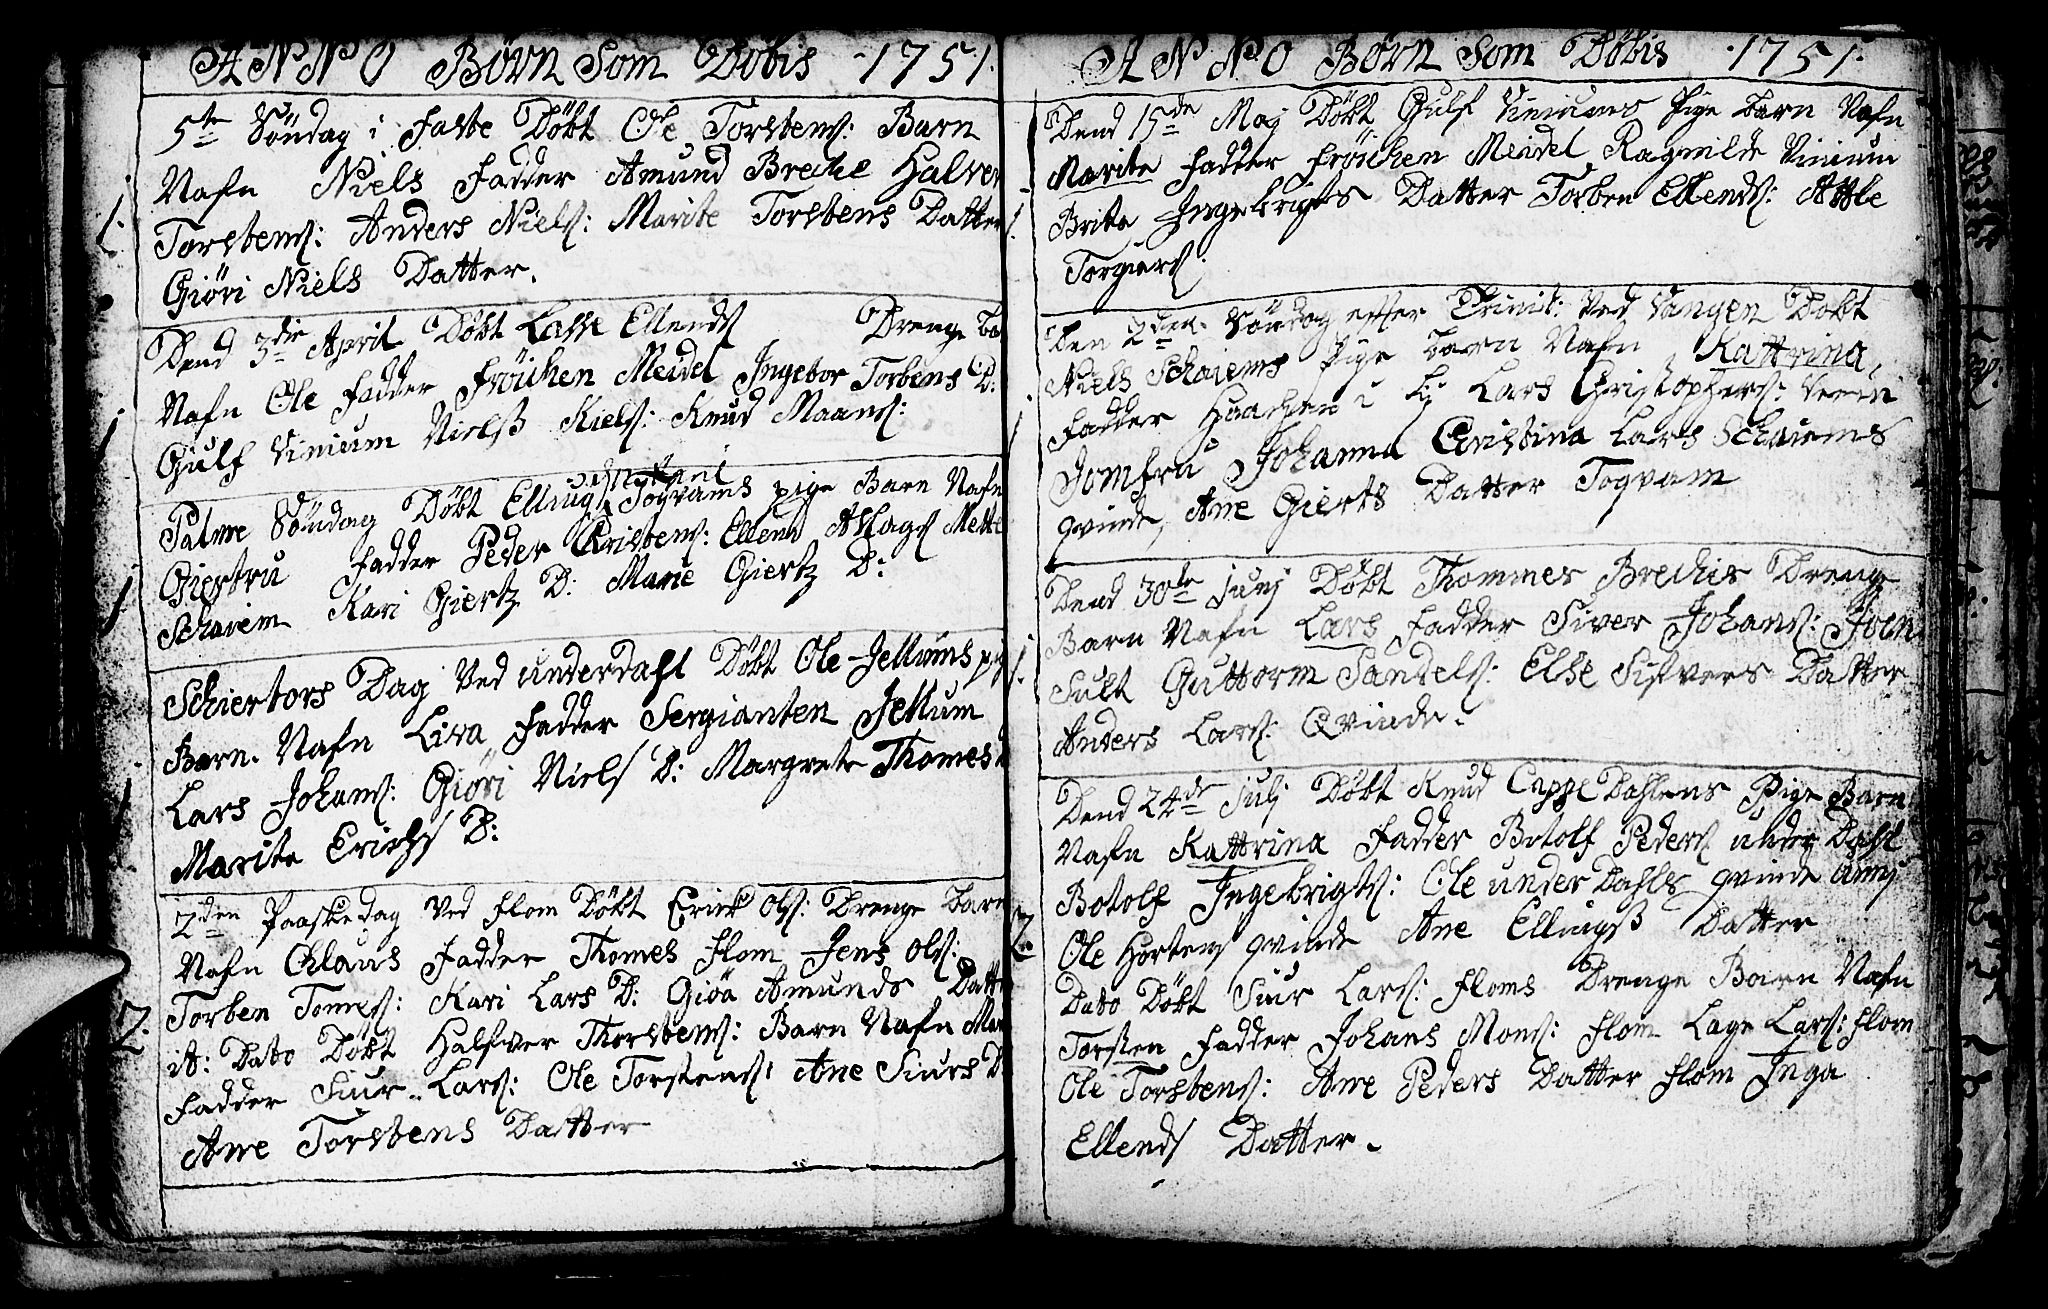 ANNO Børn Som Döbis 1751.
5te Söndag i Faste Döbt Ole Torstens: Barn
Nafn Niels Fadder Amund Breche Halver
1. Torstens: Anders Niels: Marite Torstens Datter
Giöri Niels Datter.
Dend 3die April Döbt Lasse Ellends Drenge Ba
Nafn Ole Fadder Fröichen Meidel Ingebor Torbens D:
1 Gulf Vinium Nielss Kiels: Knud Maans:
Palme Söndag Döbt Ellings Togvams pige Barn Nafn
Giertru Fadder Peder Cristens: Ellend Atlags Mette
1 Schaiem Kari Giertz D: Marie Giertz D:
Schiertors Dag Ved underdahl Döbt Ole Jellums pi
Barn. Nafn Liva Fadder Sergianten Jellum
1 Lars Johans: Giöri Niels D: Margrete Thomes
Marite Erichs D:
2den Paaskedag Ved Flom Döbt Erick Ols: Drenge Barn
Nafn Claus Fadder Thomes Flom Jens Ols:
2. Torben Tomes: Kari Lars D: Giöa Amunds Datt
it: Dato Döbt Halfver Thorstens: Barn Nafn Mar
Fadder Siur Lars: Ole Torstens: Ane Siurs D
Ane Torstens Datter
ANNO Børn Som Döbis 1751.
Dend 15de Maj Döbt Gulf Viniums Pige Barn Nafn
Marite Fadder Fröichen Meidel Ragnilde Vinium
1. Brite Ingebrigts Datter Torben Ellends: Attle
Torgiers.
Den 2den Söndag effter Trinit: Ved Vangen Döbt
Niels Schaiems Pige Barn Nafn Kattrina,
1 Fadder Haachen i Lars Christophers:
Jomfru Johanna Cristina Lars Schaiems
qvinde, Ane Gierts Datter Togvam
Dend 30te Junj Döbt Thommes Brechis Drenge
1. Barn Nafn Lars Fadder Siver Johans: Joen
Sult Guttorm Sandels: Else Sifvers Datter
Anders Lars: Qvinde.
Dend 24de Julj Döbt Knud Cappe Dahlens Pige Barn
Nafn Kattrina Fadder Botolf Peders under Dahl
Botolf Ingebrigts: Ole under Dahls qvinde
2. Ole Hortens qvinde Ane Ellingss Datter
Dato Döbt Siur Lars: Floms Drenge Barn Nafn
Torsten Fadder Johans Mons: Flom Lage Lars: Flom
Ole Torstens: Ane Peders Datter Flom Inga
Ellends Datter.